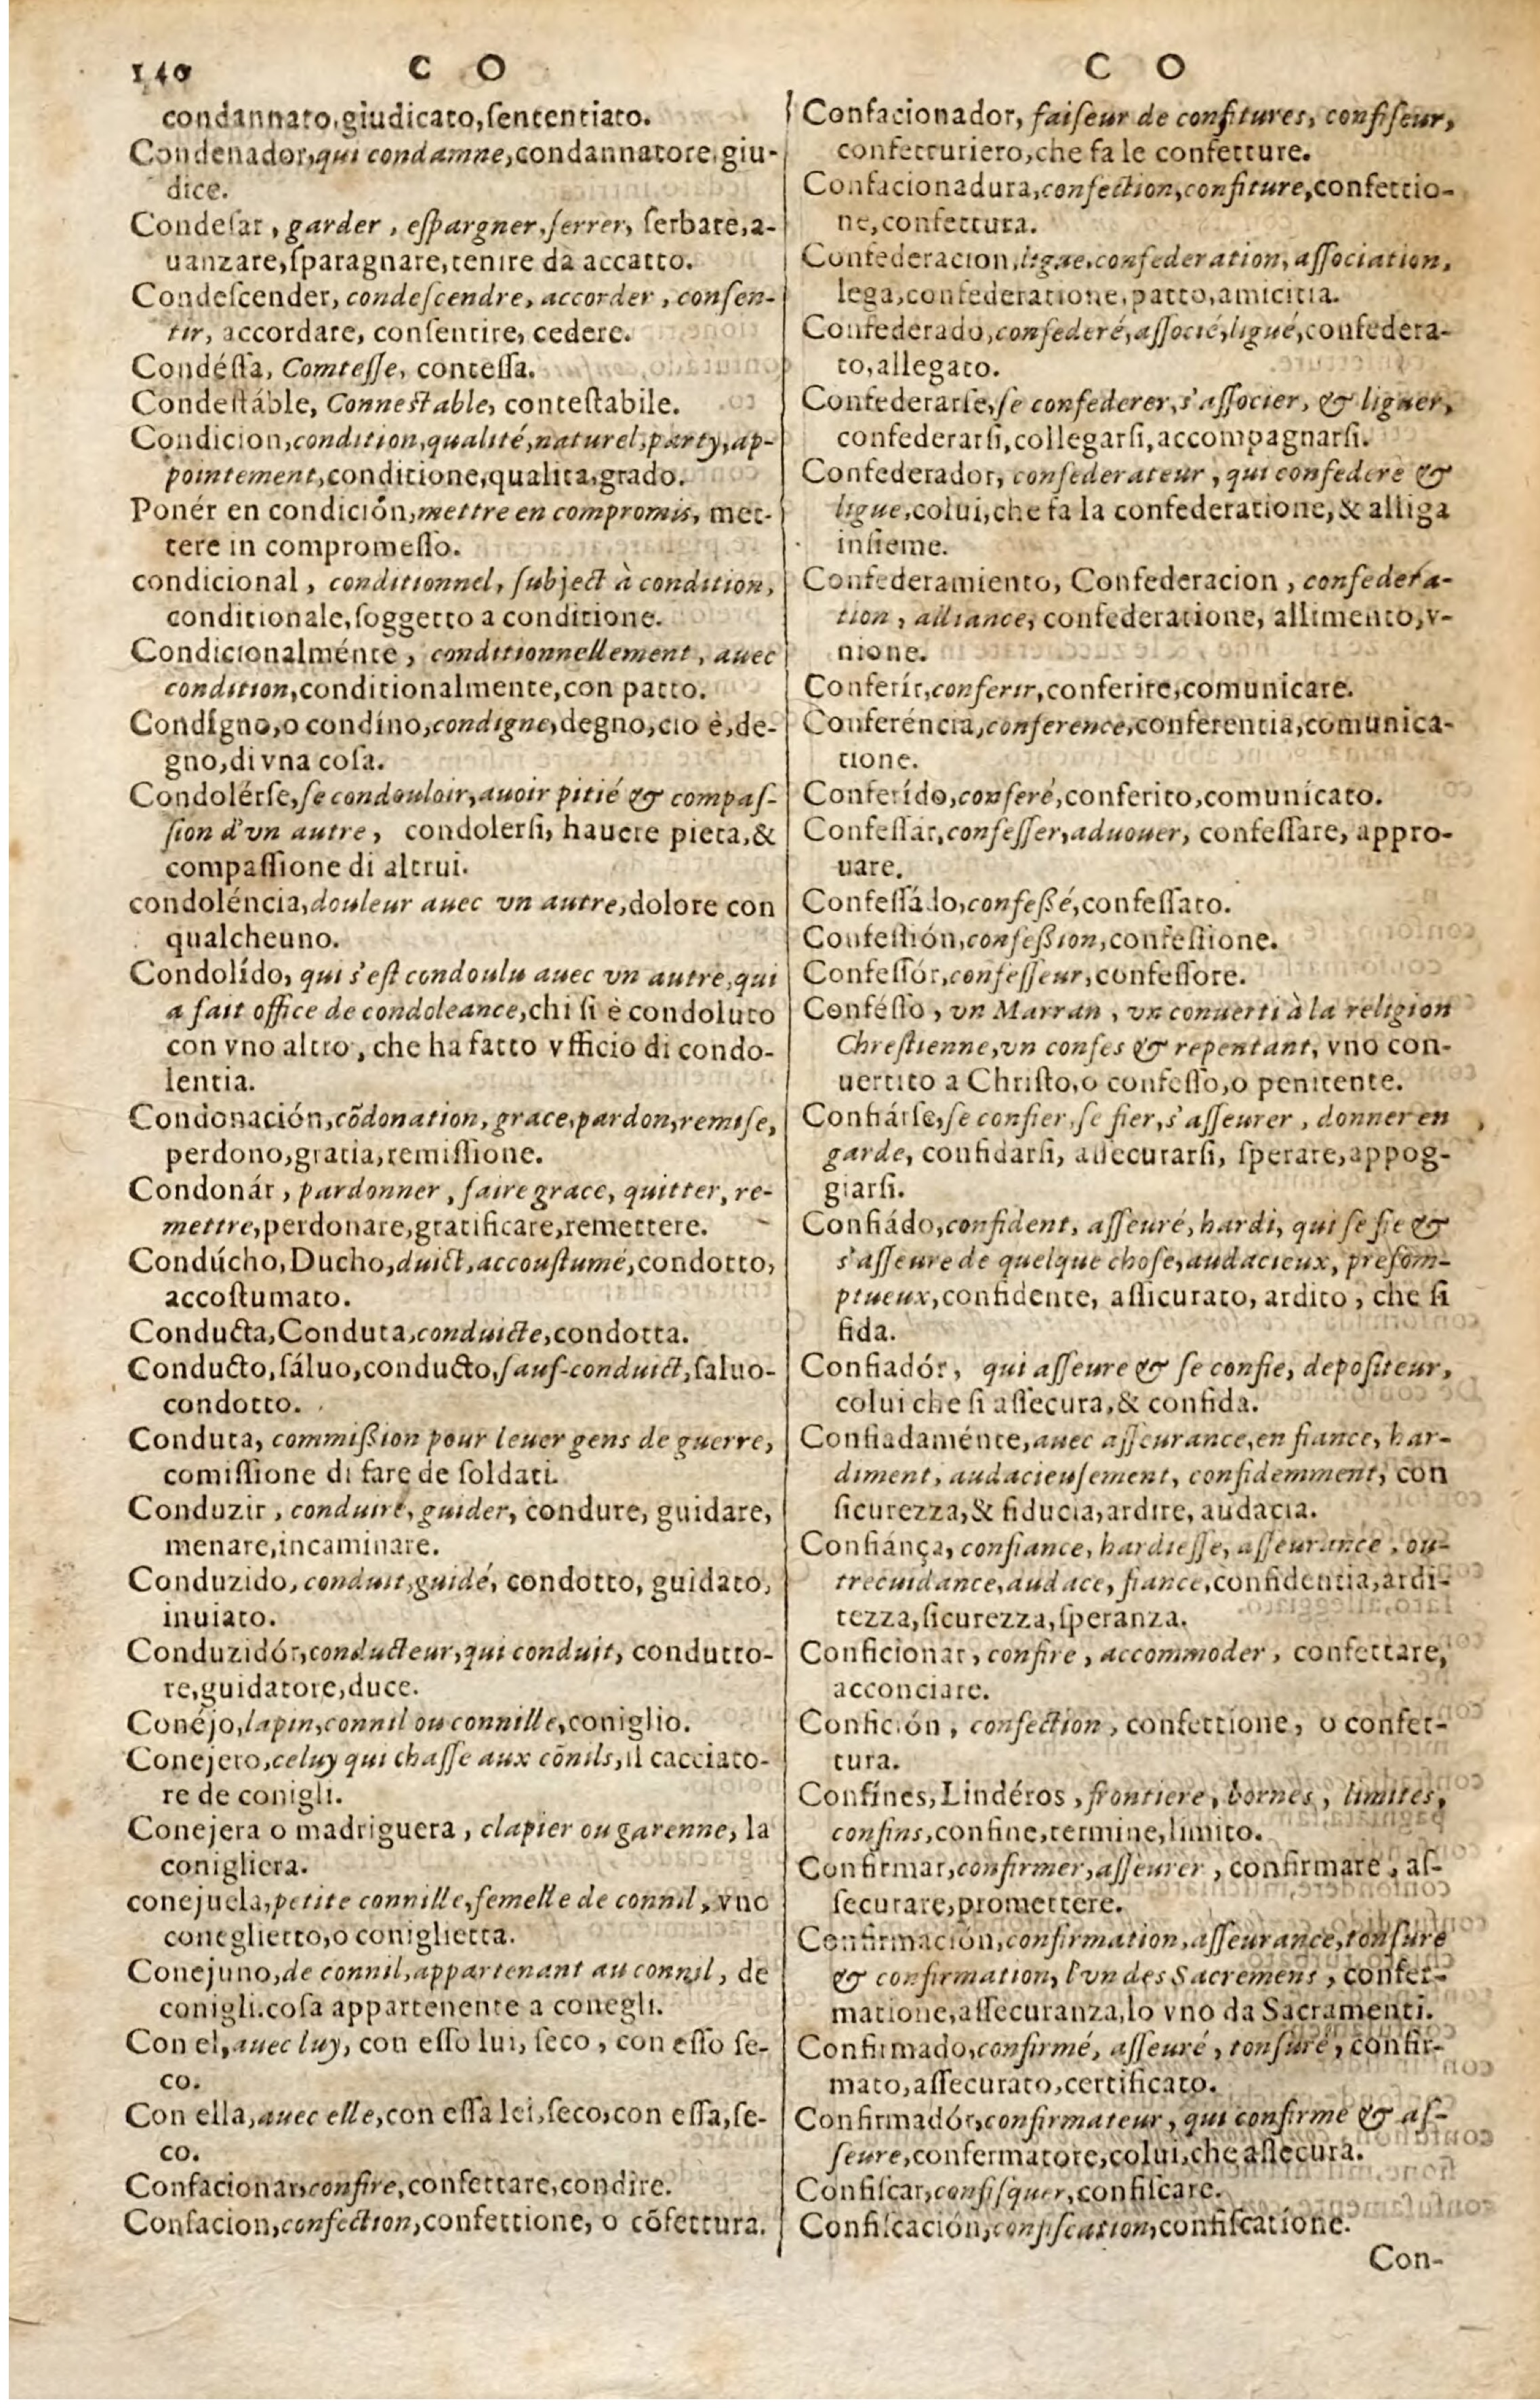 140 C O C O
condannato,giudicato,ſententiato.
Condenador,qui condamne,condannatore,giu-
dice.
Condeſar, garder, eſpargner,ſerrer, ſerbare,a-
uanzare,ſparagnare,tenire da accatto.
Condeſcender, condeſcendre, accorder, conſen-
tir, accordare, conſentire, cedere.
Condéſſa, Comteſſe, conteſſa.
Condeſtáble, Conneſtable, conteſtabile.
Condicion,condition,qualité,naturel,party,ap-
pointement,conditione,qualita,grado.
Ponér en condición,mettre en compromis, met-
tere in compromeſſo.
condicional, conditionnel, ſubject à condition,
conditionale,ſoggetto a conditione.
Condicionalménte, conditionnellement, auec
condition,conditionalmente,con patto.
Condígno,o condíno,condigne,degno,cio è,de-
gno,di vna coſa.
Condolérſe,ſe condouloir,auoir pitié & compaſ-
ſion d'vn autre, condolerſi, hauere pieta,&
compaſſione di altrui.
condoléncia,douleur auec vn autre,dolore con
qualcheuno.
Condolído, qui s'eſt condoulu auec vn autre,qui
a fait office de condoleance,chi ſi è condoluto
con vno altro, che ha fatto vfficio di condo-
lentia.
Condonación,cõdonation,grace,pardon,remiſe,
perdono,gratia,remiſſione.
Condonár, pardonner, faire grace, quitter, re-
mettre,perdonare,gratificare,remettere.
Condúcho,Ducho,duict,accouſtumé,condotto,
accoſtumato.
Conducta,Conduta,conduicte,condotta.
Conducto,ſáluo,conducto,ſauf-conduict,ſaluo-
condotto.
Conduta, commiſſion pour leuer gens de guerre,
comiſſione di fare de ſoldati.
Conduzir, conduire, guider, condure, guidare,
menare,incaminare.
Conduzido, conduit,guidé, condotto, guidato,
inuiato.
Conduzidór,conducteur,qui conduit, condutto-
re,guidatore,duce.
Conéjo,lapin,connil ou connille,coniglio.
Conejero,celuy qui chaſſe aux cõnils,il cacciato-
re de conigli.
Conejera o madriguera, clapier ou garenne, la
conigliera.
conejuela,petite connille,femelle de connil, vno
coneglietto,o coniglietta.
Conejuno,de connil,appartenant au connil, de
conigli.coſa appartenente a conegli.
Con el,auec luy, con eſſo lui, ſeco, con eſſo ſe-
co.
Con ella,auec elle,con eſſa lei,ſeco,con eſſa,ſe-
co.
Confacionar,confire,confettare,condire.
Confacion,confection,confettione, o cõfettura.
Confacionador, faiſeur de confitures, confiſeur,
confetturiero,che fa le confetture.
Confacionadura,confection,confiture,confettio-
ne,confettura.
Confederacion,ligue,confederation,aſſociation,
lega,confederatione,patto,amicitia.
Confederado,confederé,aſſocié,ligué,confedera-
to,allegato.
Confederarſe,ſe confederer,s'aſſocier, & liguer,
confederarſi,collegarſi,accompagnarſi.
Confederador, confederateur, qui confedere &
ligue,colui,che fa la confederatione,& alliga
inſieme.
Confederamiento, Confederacion, confedera-
tion, alliance, confederatione, allimento,v-
nione.
Conferír,conferir,conferire,comunicare.
Conferéncia,conference,conferentia,comunica-
tione.
Conferído,conferé,conferito,comunicato.
Confeſſar,confeſſer,aduouer, confeſſare, appro-
uare.
Confeſſádo,confeſſé,confeſſato.
Confeſſión,confeſſion,confeſſione.
Confeſſór,confeſſeur,confeſſore.
Conféſſo, vn Marran, vn conuerti à la religion
Chreſtienne,vn confes & repentant, vno con-
uertito a Chriſto,o confeſſo,o penitente.
Confiárſe,ſe confier,ſe fier,s'aſſeurer, donner en
garde, confidarſi, aſſecurarſi, ſperare,appog-
giarſi.
Confiádo,confident, aſſeuré, hardi, qui ſe fie &
s'aſſeure de quelque choſe,audacieux, preſom-
ptueux,confidente, aſſicurato, ardito, che ſi
fida.
Confiadór, qui aſſeure & ſe confie, depoſiteur,
colui che ſi aſſecura,& confida.
Confiadaménte,auec aſſeurance,en fiance, har-
diment, audacieuſement, confidemment, con
ſicurezza,& fiducia,ardire, audacia.
Confiánça, confiance, hardieſſe, aſſeurance, ou-
trecuidance,audace, fiance,confidentia,ardi-
tezza,ſicurezza,ſperanza.
Conficionar, confire, accommoder, confettare,
acconciare.
Confición, confection, confettione, o confet-
tura.
Confínes,Lindéros, frontiere, bornes, limites,
confins,confine,termine,limito.
Confirmar,confirmer,aſſeurer, confirmare, aſ-
ſecurare,promettere.
Confirmación,confirmation,aſſeurance,tonſure
& confirmation, l'vn des Sacremens, confer-
matione,aſſecuranza,lo vno da Sacramenti.
Confirmado,confirmé, aſſeuré, tonſuré, confir-
mato,aſſecurato,certificato.
Confirmadór,confirmateur, qui confirme & aſ-
ſeure,confermatore,colui,che aſſecura.
Confiſcar,confiſquer,confiſcare.
Confiſcación,confiſcation,confiſcatione.
Con-